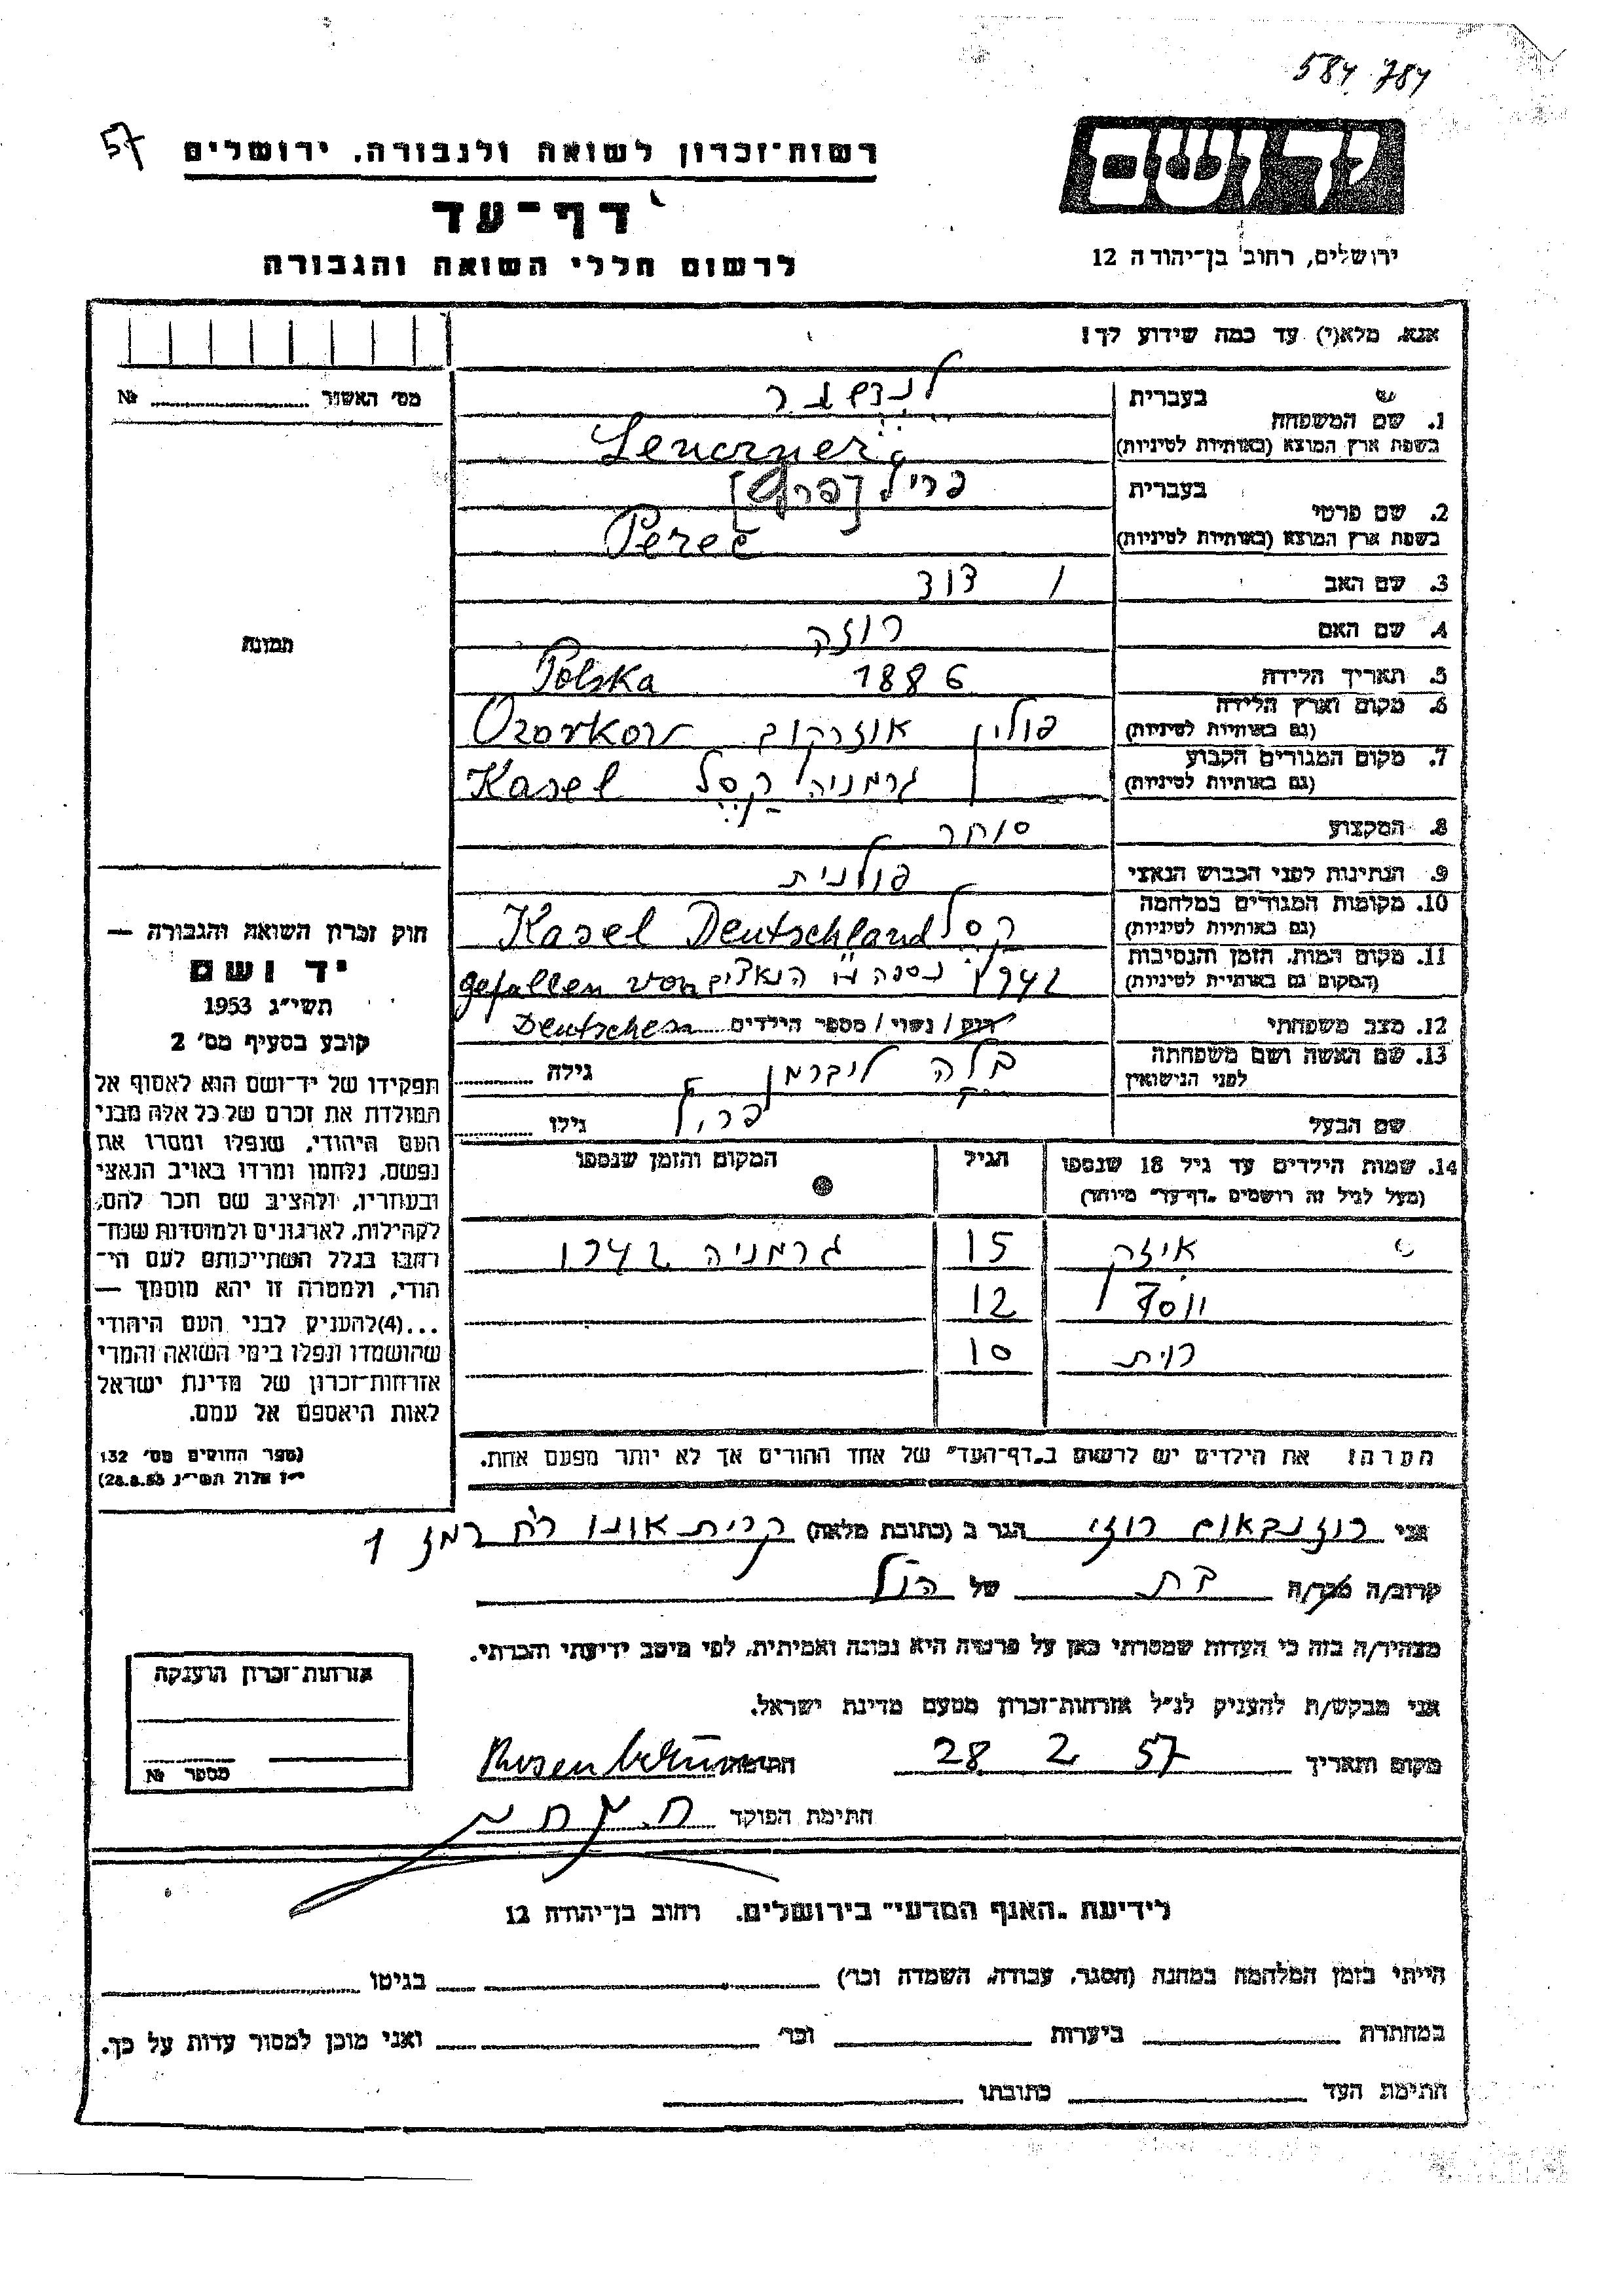 584 784
57
יד ושם
רשות־זכרון לשואה ולגבורה, ירושלים
דף־עד
לרשום חללי השואה והגבורה
ירושלים, רחוב בן־יהודה 12
אנא, מלא(י) עד כמה שידוע לך!
מס׳ האשור № 
1. שם המשפחה
בעברית
בשפת ארץ המוצא (באותיות לטיניות)
2. שם פרטי
בעברית פריץ
בשפת ארץ המוצא (באותיות לטיניות) Perec
3. שם האב דוד
4. שם האם רוזה
5. תאריך הלידה 1886 Polska
6. מקום וארץ הלידה
(גם באותיות לטיניות) פולין אוזרקוב Ozorkow
7. מקום המגורים הקבוע
(גם באותיות לטיניות) גרמניה קסל Kasel
8. המקצוע סוחר
9. הנתינות לפני הכבוש הנאצי פולנית
10. מקומות המגורים במלחמה
(גם באותיות לטיניות) קסל Kasel Deutschland
11. מקום המות, הזמן והנסיבות
(המקום גם באותיות לטיניות) 1942 נספה הנאצים gefallen von
12. מצב משפחתי רווק / נשוי / מספר הילדים Deutschen
13. שם האשה ושם משפחתה
לפני הנישואין בלה ליברמן גילה
שם הבעל פריץ גילו
תמונה
14. שמות הילדים עד גיל 18 שנספו
(מעל לגיל זה רושמים „דף־עד״ מיוחד)
הגיל
המקום והזמן שנספו
איזה 15 גרמניה 1942
יוסף 12
רוית 10
הערה: את הילדים יש לרשום ב„דף־העד״ של אחד ההורים אך לא יותר מפעם אחת.
חוק זכרון השואה והגבורה —
יד ושם
תשי״ג 1953
קובע בסעיף מס׳ 2
תפקידו של יד־ושם הוא לאסוף אל
המולדת את זכרם של כל אלה מבני
העם היהודי, שנפלו ומסרו את
נפשם, נלחמו ומרדו באויב הנאצי
ובעוזריו, ולהציב שם וזכר להם,
לקהילות, לארגונים ולמוסדות שנח־
רבו בגלל השתייכותם לעם הי־
הודי, ולמטרה זו יהא מוסמך —
...(4) להעניק לבני העם היהודי
שהושמדו ונפלו בימי השואה והמרי
אזרחות־זכרון של מדינת ישראל
לאות היאספם אל עמם.
(ספר החוקים מס׳ 132
י״ז אלול תשי״ג 28.8.53)
אני רוזנבאום רוזי הגר ב (כתובת מלאה) קרית אונו רח רמז 1
קרוב/ה מכר/ה בת של הנ״ל
מצהיר/ה בזה כי העדות שמסרתי כאן על פרטיה היא נכונה ואמיתית, לפי מיטב ידיעתי והכרתי.
אני מבקש/ת להעניק לנ״ל אזרחות־זכרון מטעם מדינת ישראל.
מקום ותאריך 28 2 57 חתימה Rosenbaum
חתימת הפוקד
אזרחות־זכרון הוענקה
מספר №
לידיעת „האגף המדעי״ בירושלים. רחוב בן־יהודה 12
הייתי בזמן המלחמה במחנה (הסגר, עבודה, השמדה וכו׳) בגיטו
במחתרת ביערות וכו׳ ואני מוכן למסור עדות על כך.
חתימת העד כתובתו